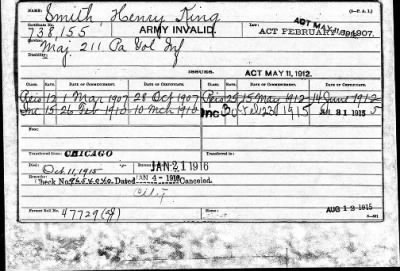 NAME: Smith, Henry King (3-P.A.I.)
Certificate No. 738,155 ARMY INVALID. Law: ACT FEBRUARY 1907. ACT MAY 11, 1912
Maj. 211 Pa Vol Inf
ISSUES. ACT MAY 11, 1912.
CLASS. RATE. DATE OF COMMENCEMENT. DATE OF CERTIFICATE. CLASS. RATE. DATE OF COMMENCEMENT. DATE OF CERTIFICATE.
Reis 12 1 Mar 1907 28 Oct 1907 Reis 25 15 May 1912 14 June 1912
Inc 15 26 Feb 1910 10 Mch 1910 Inc 30 Feb 23 1915 JUL 31 1915
From:
Transferred from: CHICAGO
Died: Oct. 11, 1915 JAN 21 1916
Remarks: Check No. Dated JAN 4 - 1916 Canceled.
Former Roll No. 47729 AUG 12 1915